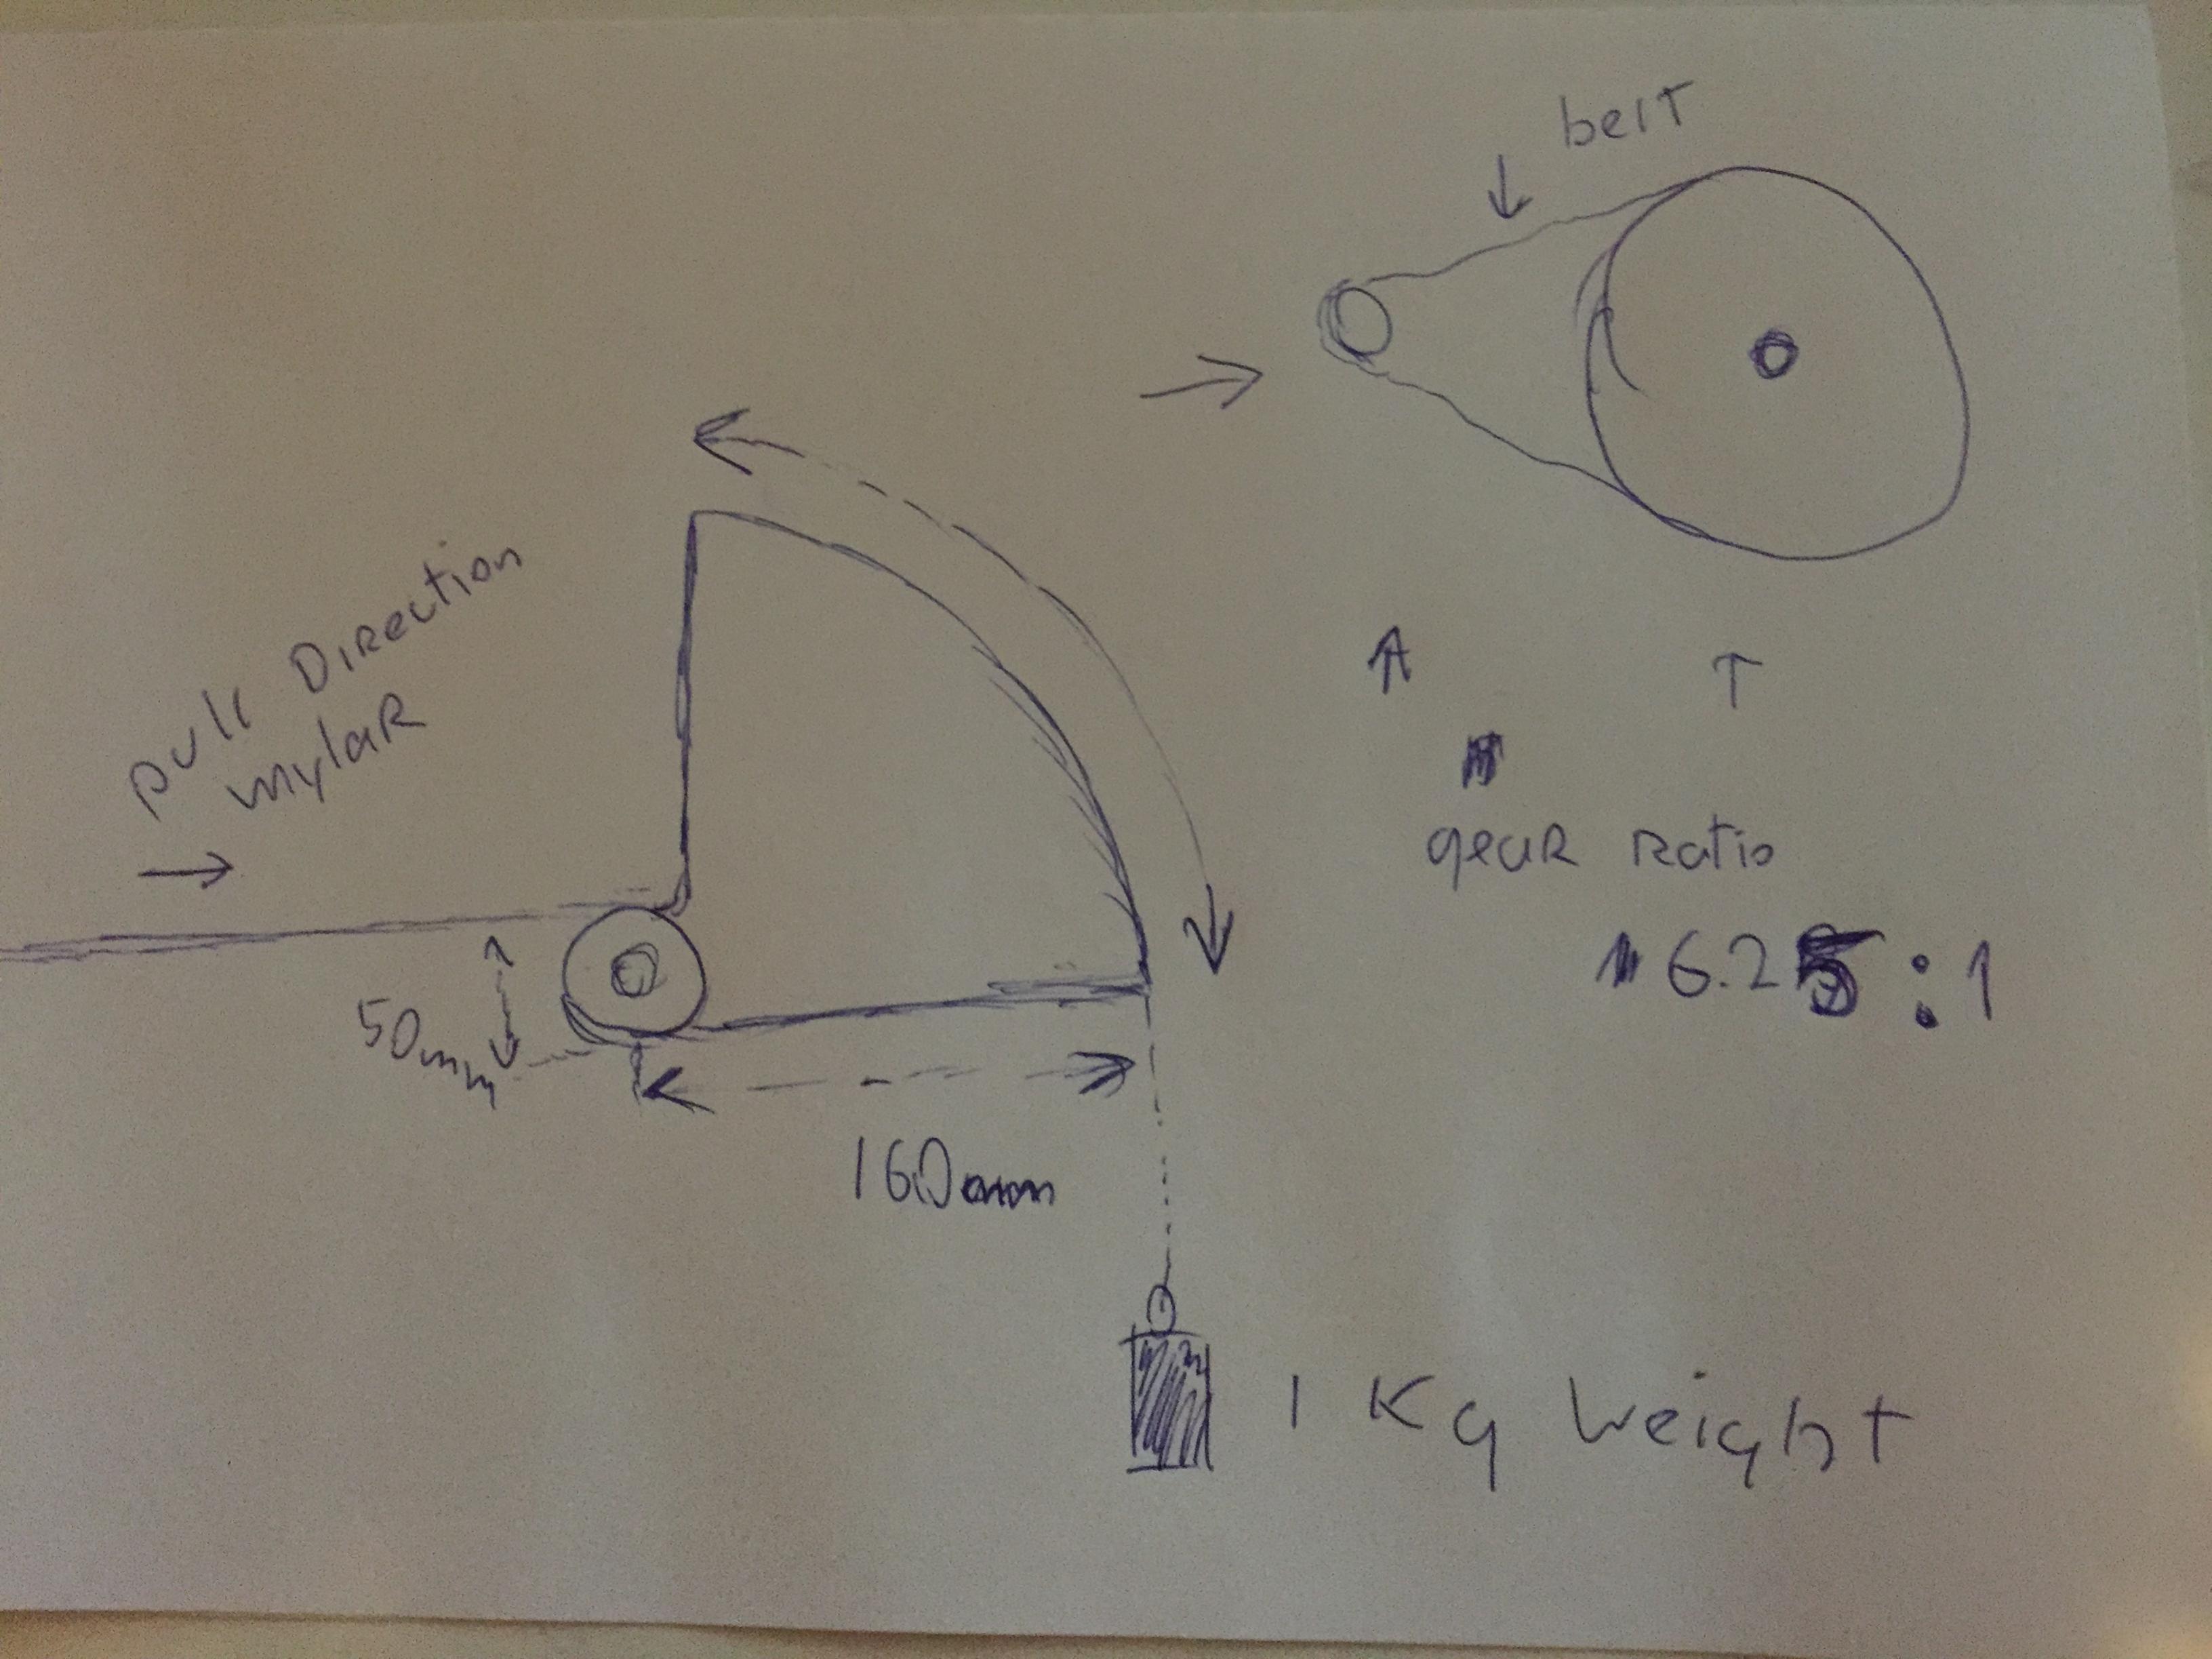 belt
pull Direction
mylar
50mm
160mm
gear ratio
6.25:1
1 Kg Weight